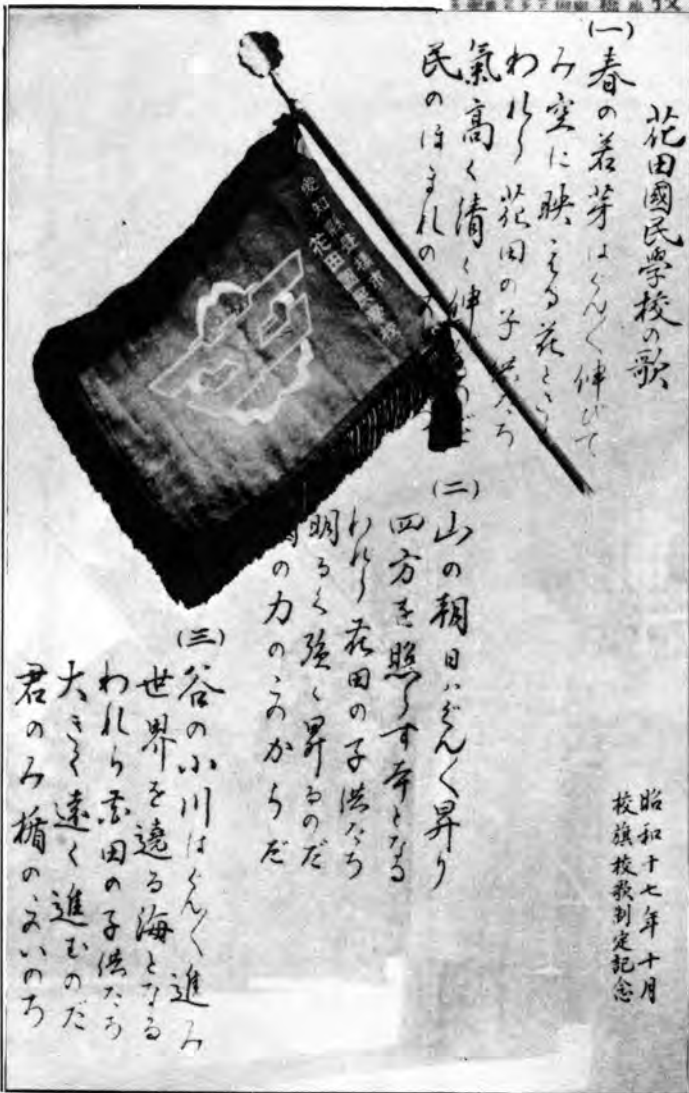 花田國民學校の歌
(一)
春の若芽はぐん〱伸びて
み空に映える花と
われら花田の子供たち
氣高く清く伸
民のほまれの
愛知縣豊橋市
花田國民學校
(二)
山の朝日はぐん〱昇り
四方を照らす となる
われら花田の子供たち
明るく強く昇るのだ
の力のこのからだ
(三)
谷の小川はぐん〱進み
世界を遶る海となる
われら花田の子供たち
大きく遠く進むのだ
君のみ楯のこのいのち
昭和十七年十月
校旗校歌制定記念